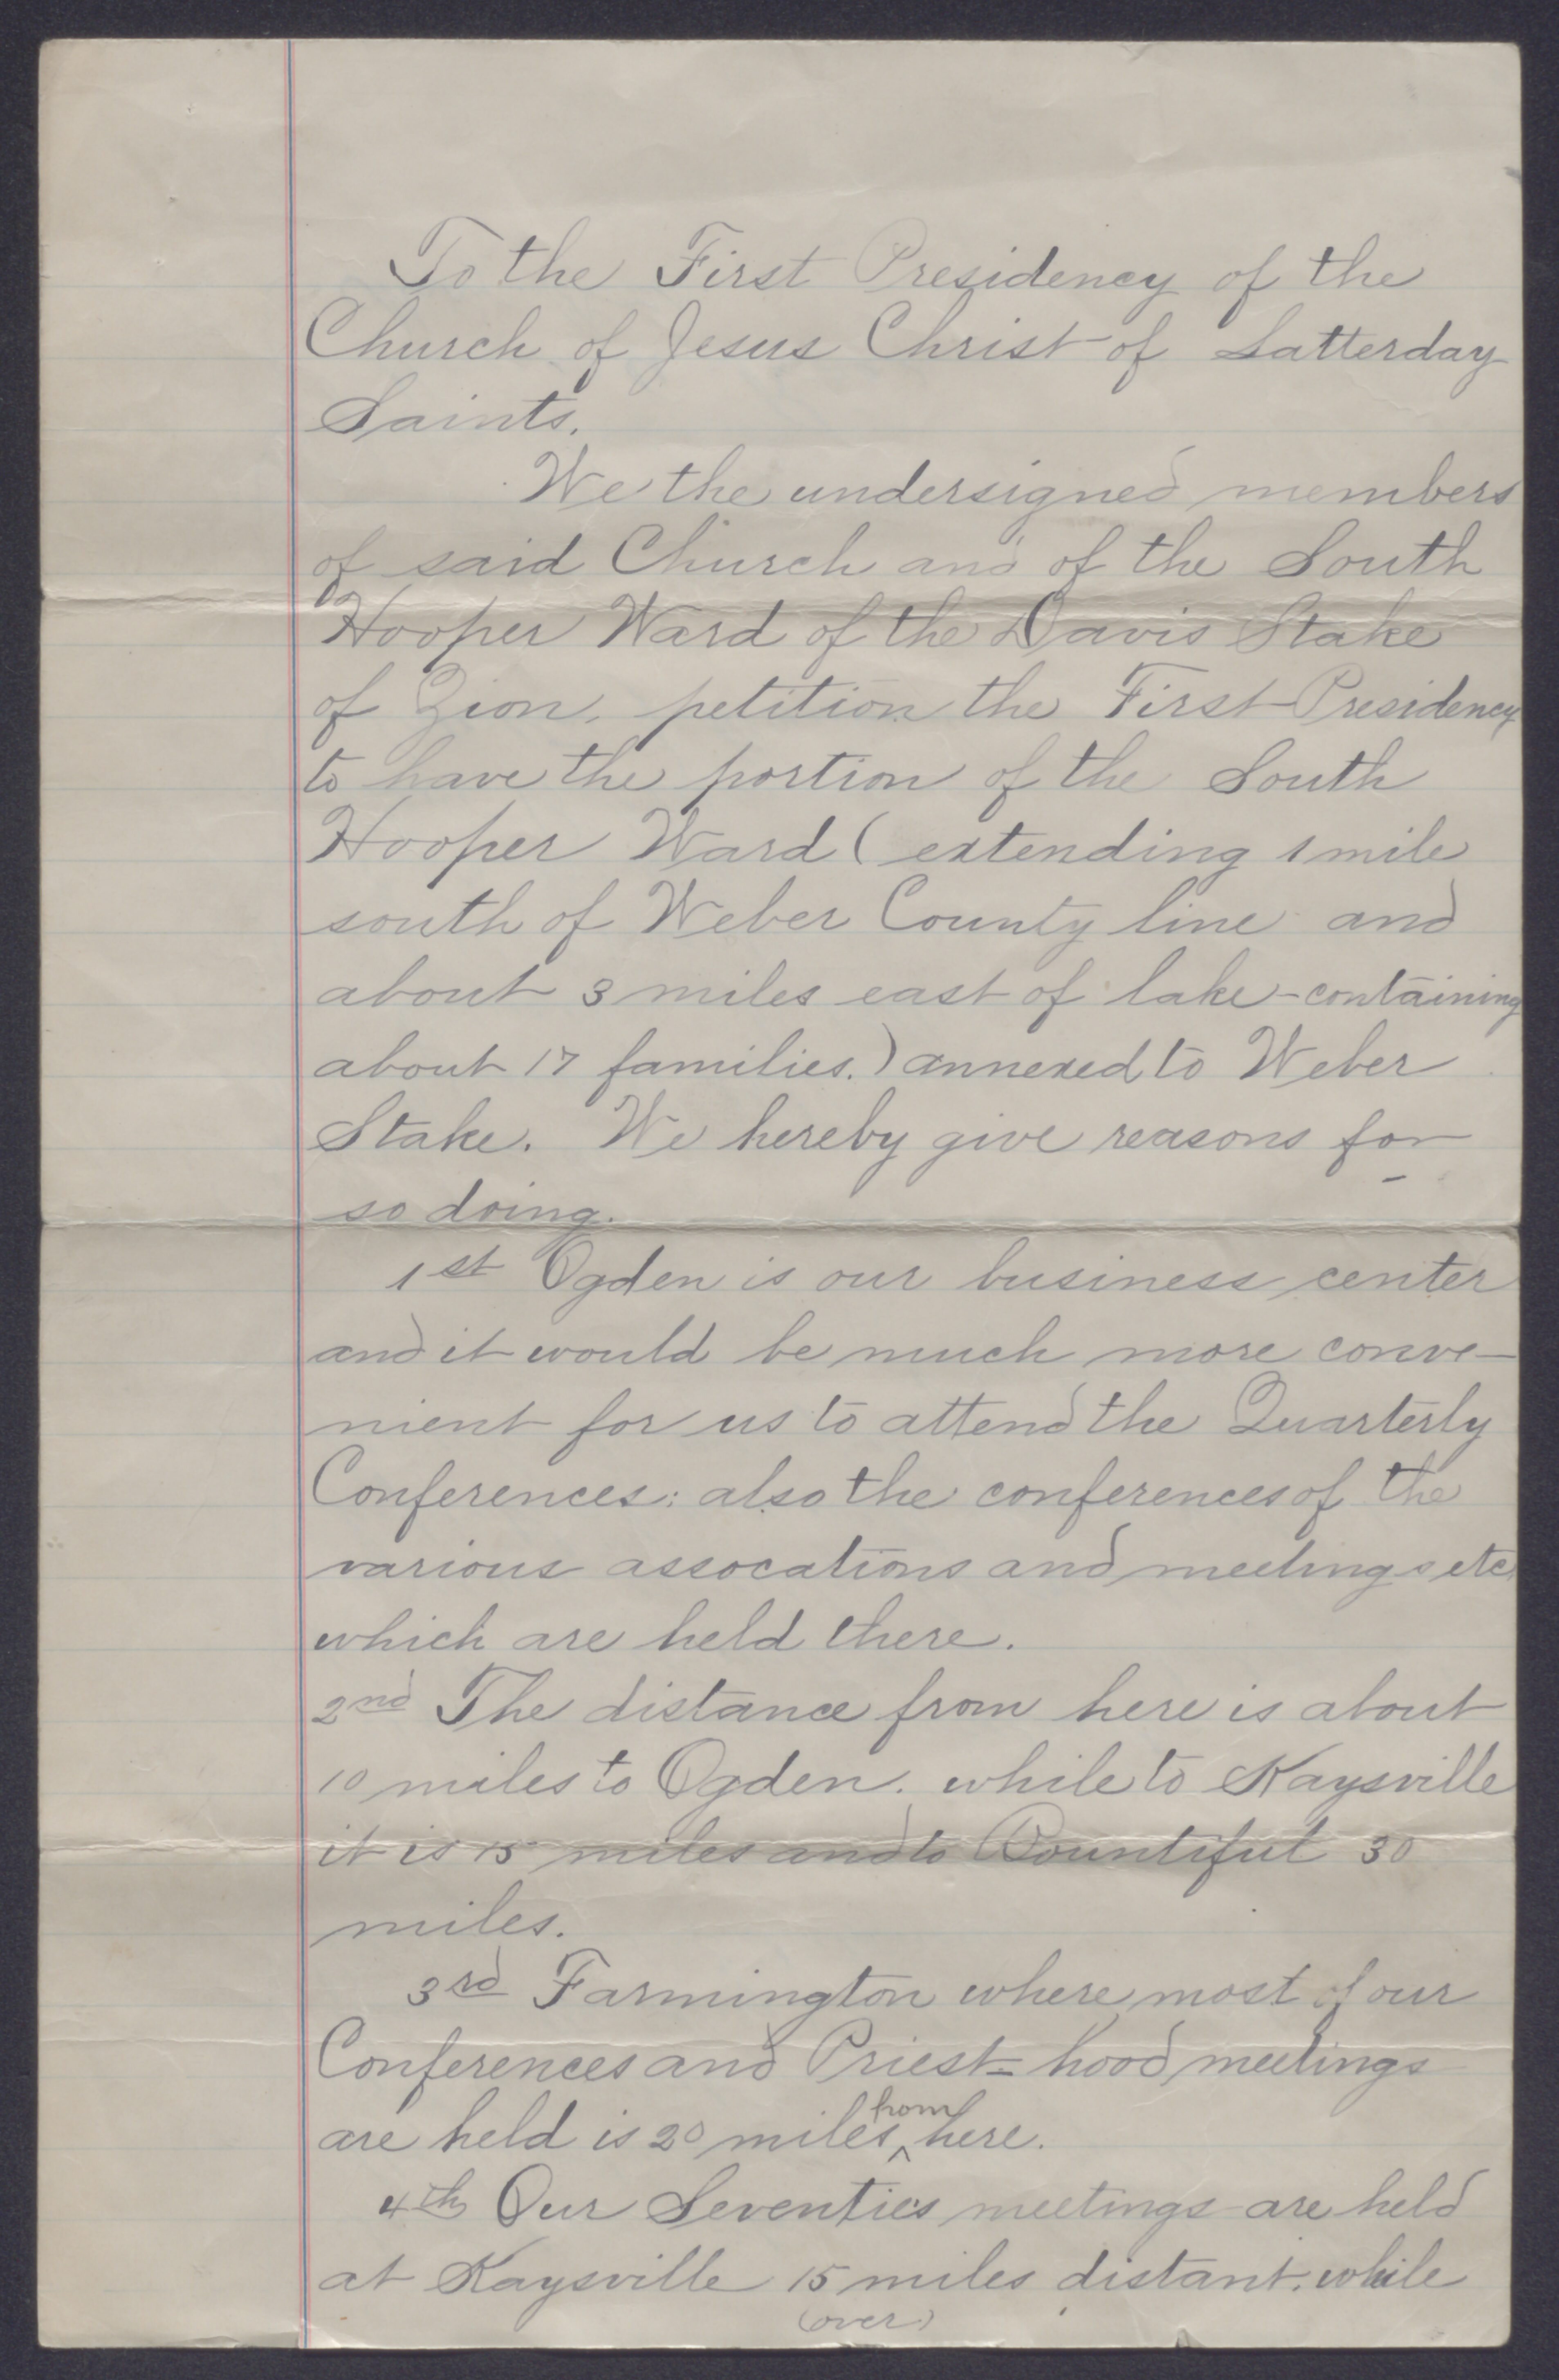 To the First Presidency of the
Church of Jesus Christ of Latterday
Saints.
We the undersigned members
of said Church and of the South
Hooper Ward of the Davis Stake
of Zion, petition the First Presidency
to have the portion of the South
Hooper Ward ( extending 1 mile
south of Weber County line and
about 3 miles east of lake - containing
about 17 families.) annexed to Weber
Stake. We hereby give reasons for
so doing.
1st Ogden is our business center
and it would be much more conve-
nient for us to attend the Quarterly
Conferences: also the conferences of the
various assocations and meetings etc.
which are held there.
2nd The distance from here is about
10 miles to Ogden. while to Kaysville
it is 15 miles and to Bountiful 30
miles.
3rd Farmington where most of our
Conferences and Priest=hood meetings
are held is 20 miles ^from here.
4th Our Seventies meetings are held
at Kaysville 15 miles distant. while
(over)